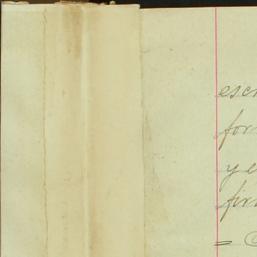 escr
for
ye
fir
=